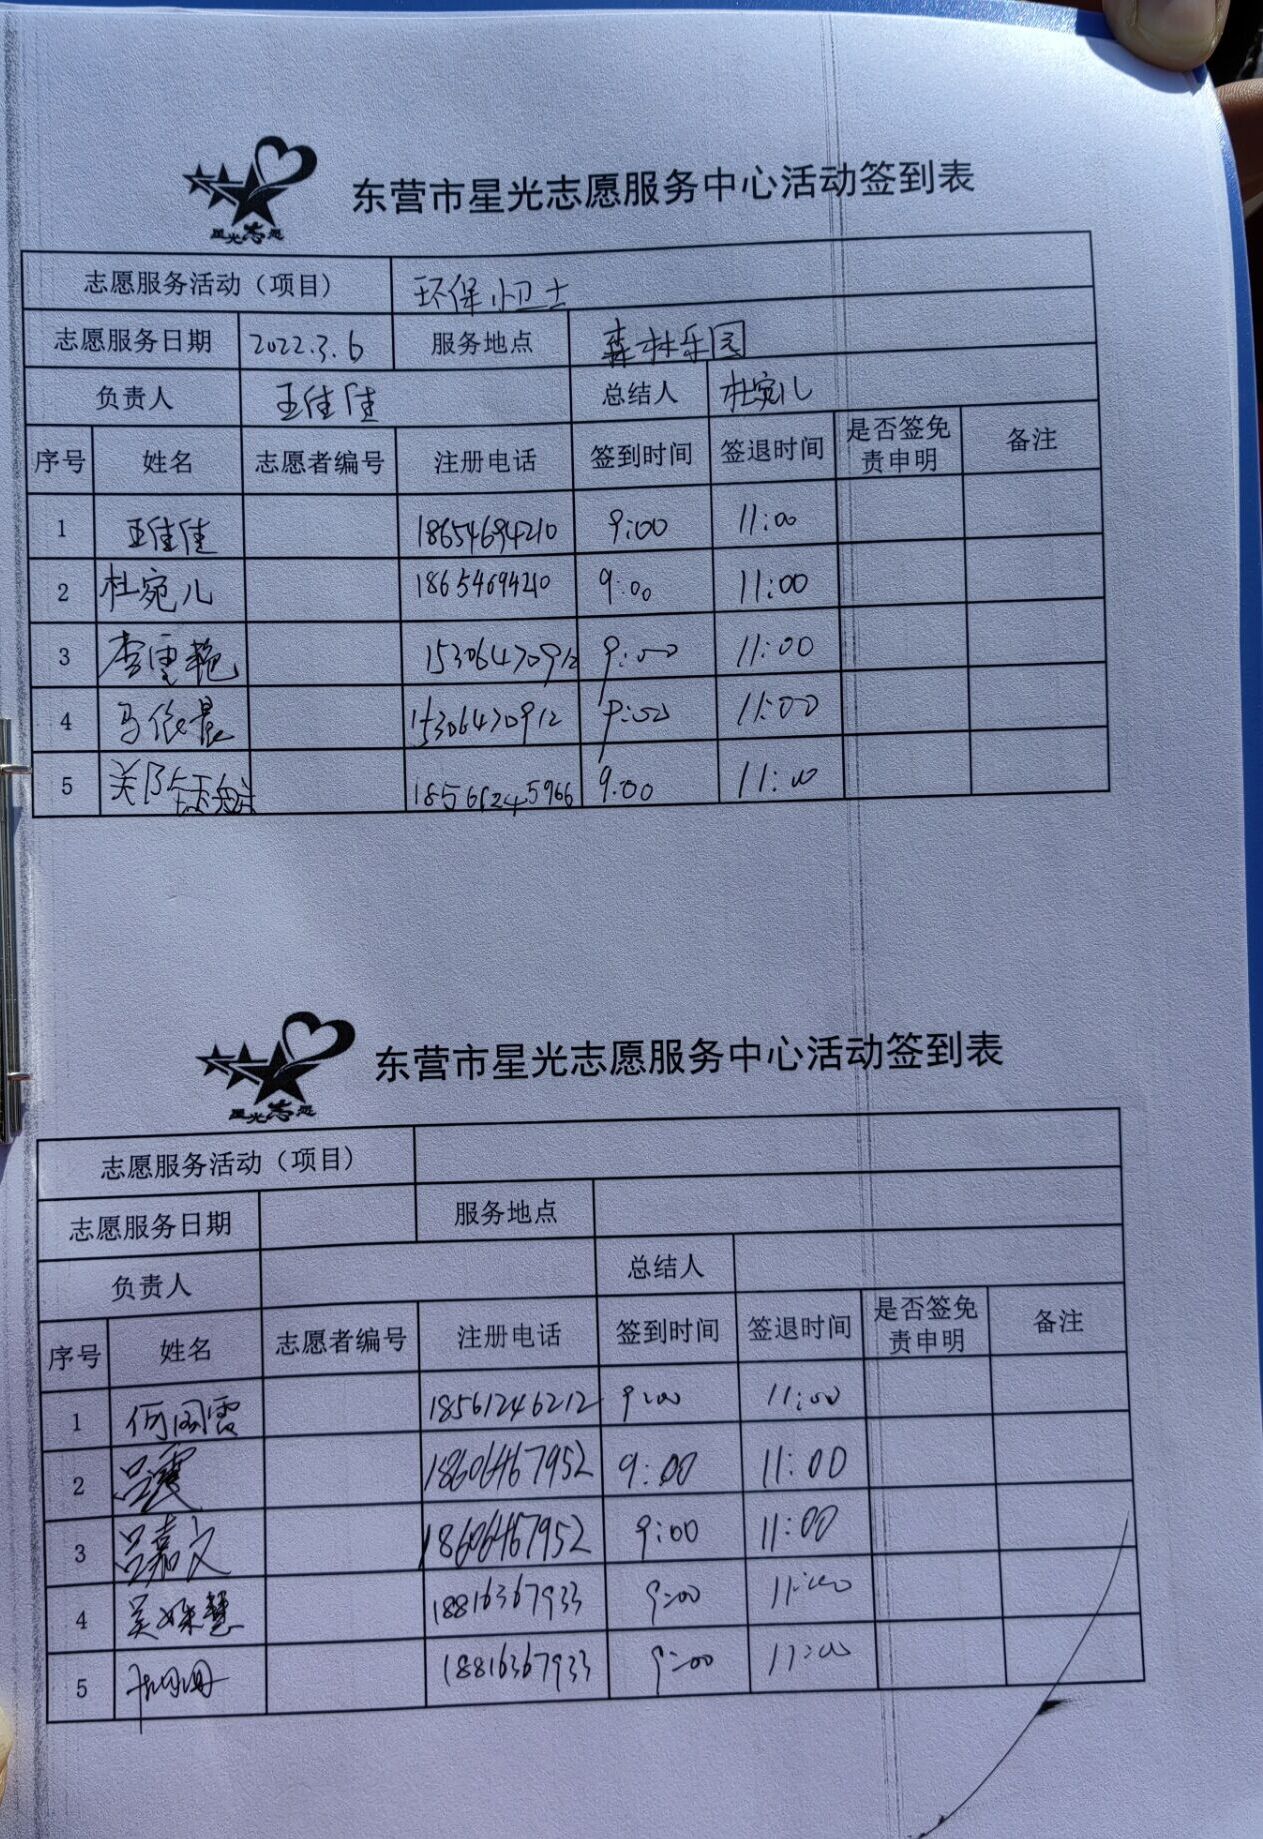 星光志愿
东营市星光志愿服务中心活动签到表
志愿服务活动（项目） 环保小卫士
志愿服务日期 2022.3.6 服务地点 森林乐园
负责人 王佳佳 总结人 杜宛儿
序号 姓名 志愿者编号 注册电话 签到时间 签退时间 是否签免责申明 备注
1 王佳佳 18654694210 9:00 11:00
2 杜宛儿 18654694210 9:00 11:00
3 李雪艳 15306470912 9:00 11:00
4 马依晨 15306470912 9:00 11:00
5 18561245966 9:00 11:00
星光志愿
东营市星光志愿服务中心活动签到表
志愿服务活动（项目）
志愿服务日期 服务地点
负责人 总结人
序号 姓名 志愿者编号 注册电话 签到时间 签退时间 是否签免责申明 备注
1 18561246212 9:00 11:00
2 吕霞 18606467952 9:00 11:00
3 吕嘉文 18606467952 9:00 11:00
4 18816367933 9:00 11:00
5 18816367933 9:00 11:00